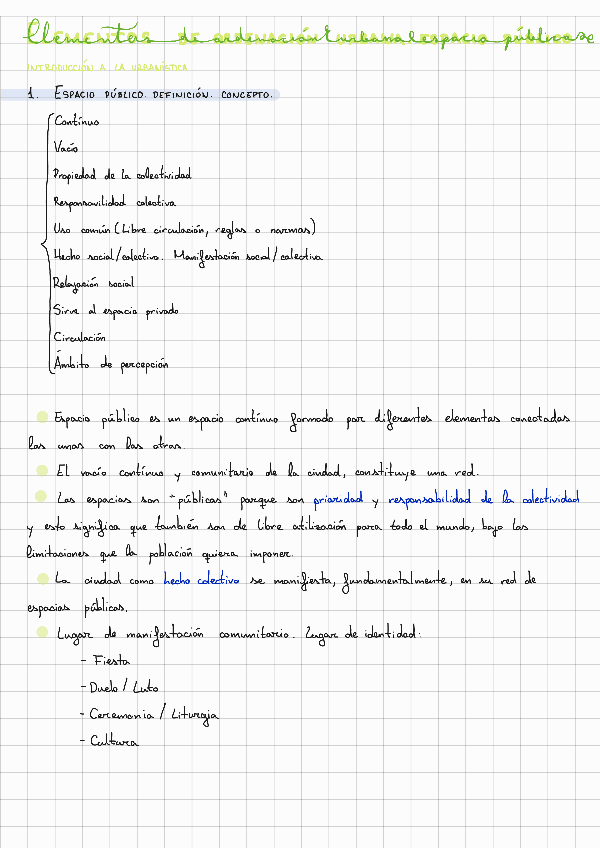 Elementos de ordenación urbana espacio públicos
INTRODUCCIÓN A LA URBANÍSTICA
1. ESPACIO PÚBLICO. DEFINICIÓN. CONCEPTO.
Contínuo
Vacío
Propiedad de la colectividad
Responsavilidad colectiva
Uso común (Libre circulación, reglas o normas)
Hecho social/colectivo. Manifestación social/colectiva
Relajación social
Sirve al espacio privado
Circulación
Ámbito de percepción
Espacio público es un espacio contínuo formado por diferentes elementos conectados
los unos con los otros.
El vacío contínuo y comunitario de la ciudad, constituye una red.
Los espacios son "públicos" porque son prioridad y responsabilidad de la colectividad
y esto significa que también son de libre utilización para todo el mundo, bajo las
limitaciones que la población quiera imponer.
La ciudad como hecho colectivo se manifiesta, fundamentalmente, en su red de
espacios públicos.
Lugar de manifestación comunitario. Lugar de identidad:
- Fiesta
- Duelo / Luto
- Ceremonia / Liturgia
- Cultura